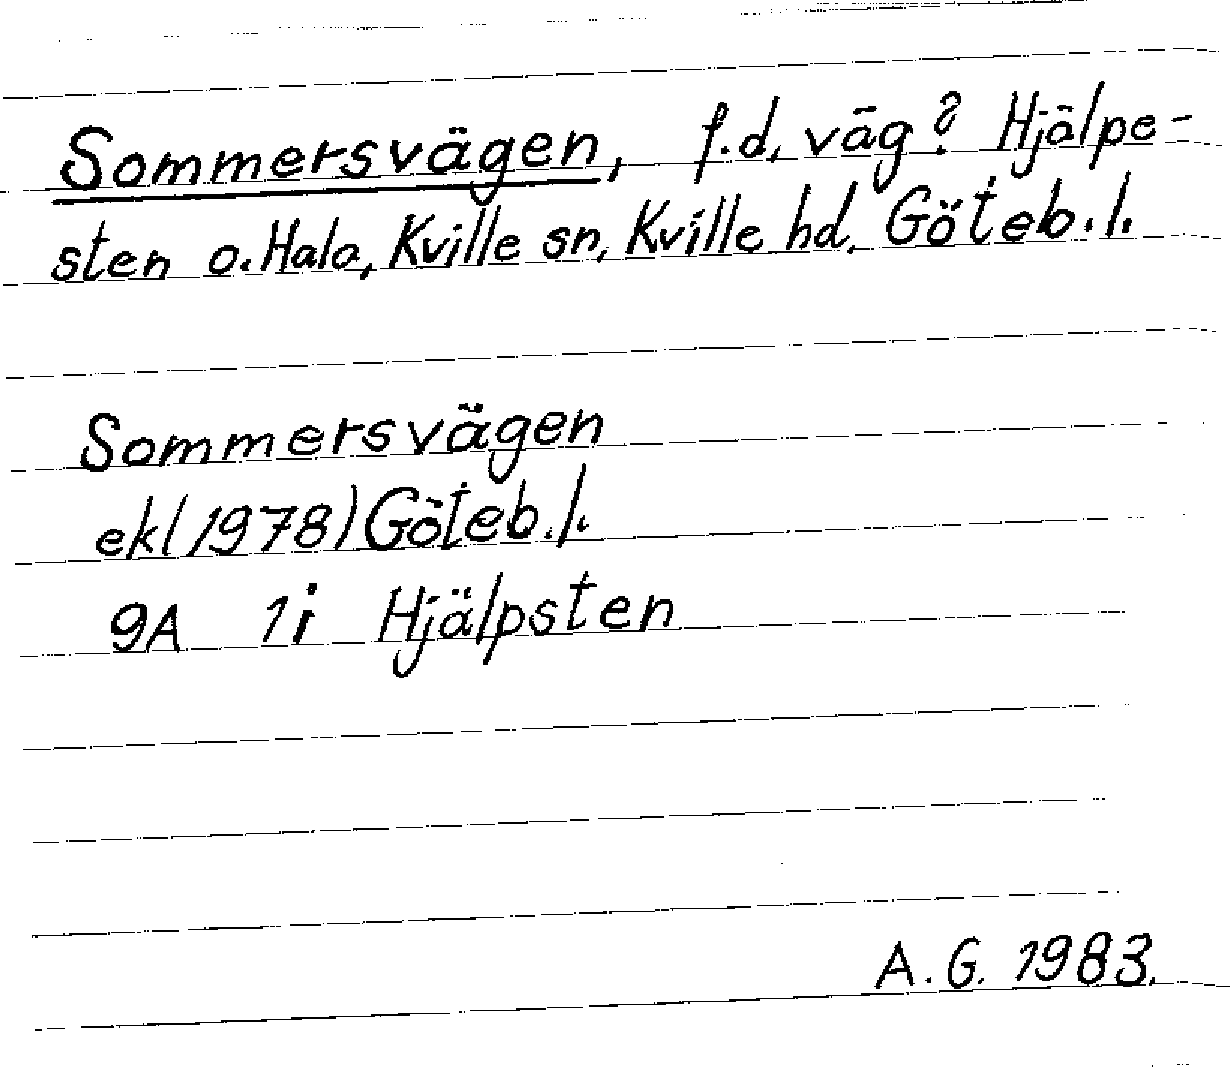 Sommersvägen, f.d. väg? Hjälpe-
sten o. Hala, Kville sn, Kville hd, Göteb. l.
Sommersvägen
ekl (1978) Göteb. l.
9A 1i Hjälpsten
A. G. 1983.